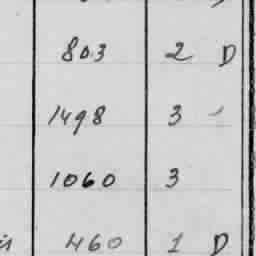 803 2 D
1498 3
1060 3
460 1 D